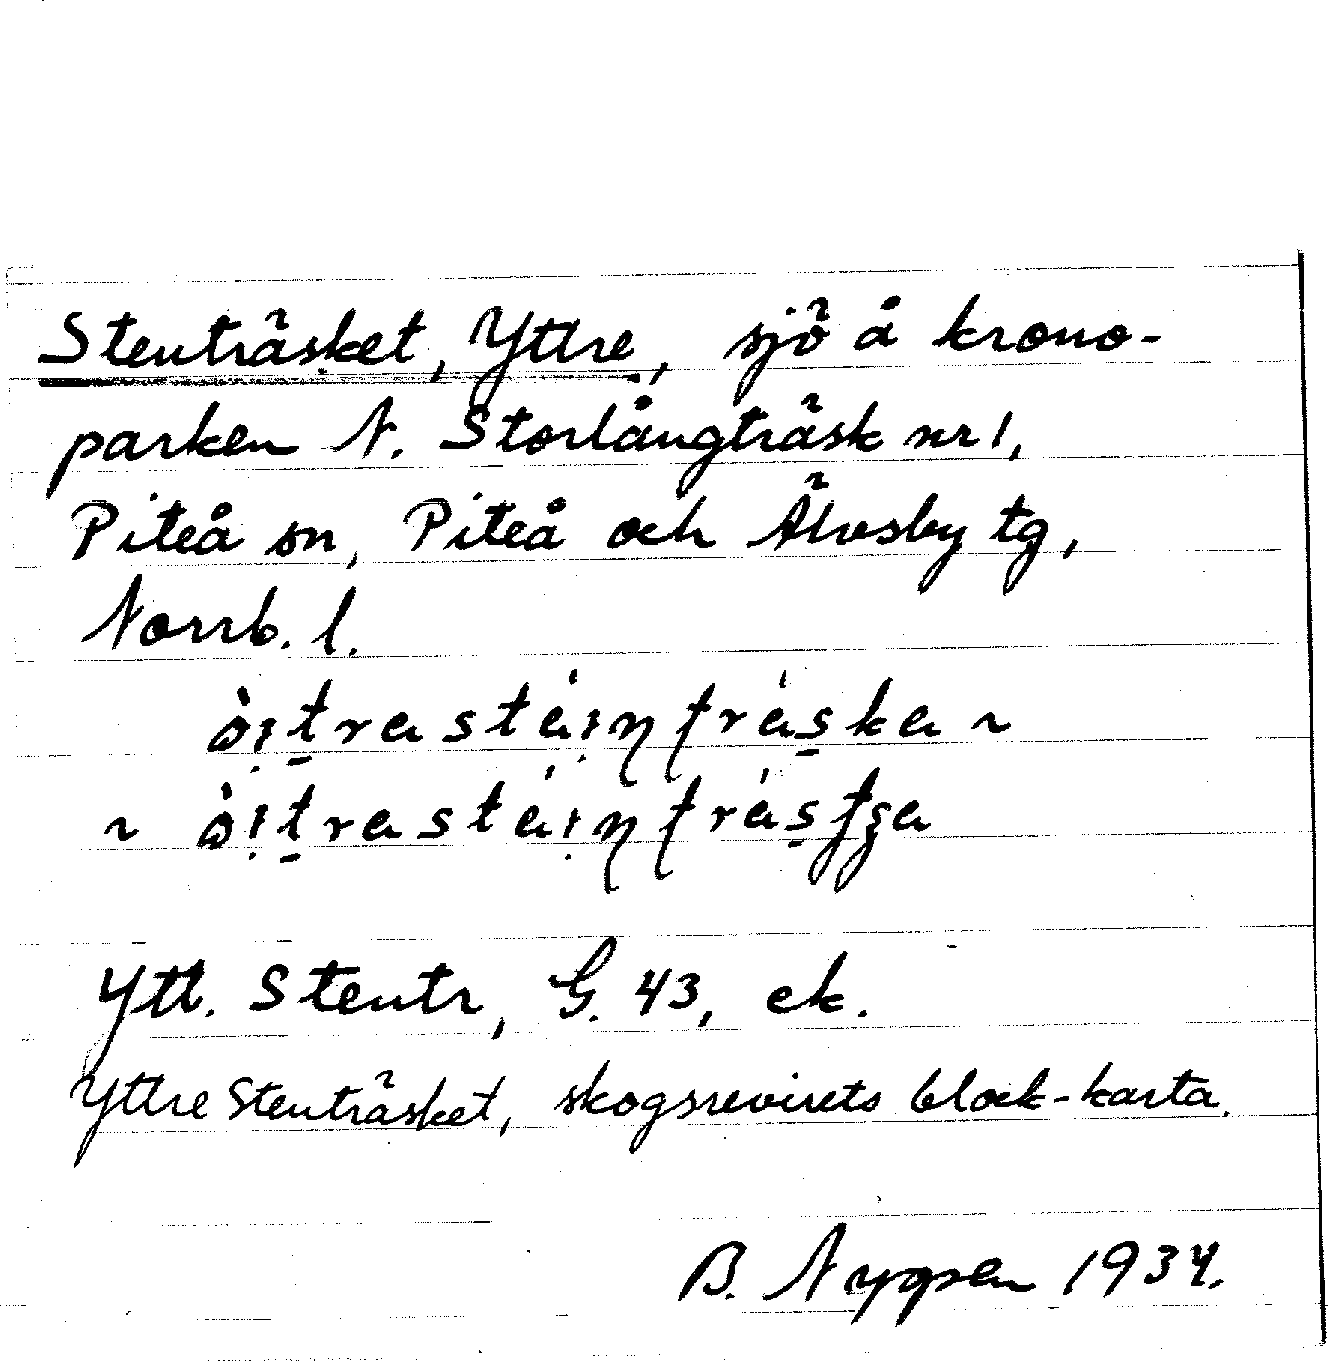 Stenträsket, Yttre, sjö å krono-
parken N. Storlångträsk nr 1,
Piteå sn, Piteå och Älvsby tg,
Norrb. l.
òi̩t̠rastáịŋʈrás̠ka ~
~ òi̩t̠rastáịŋʈrás̠ʈʂa
Ytt. Stentr, G. 43, ek.
Yttre Stenträsket, skogsrevirets block-karta.
B. Nygren 1934.